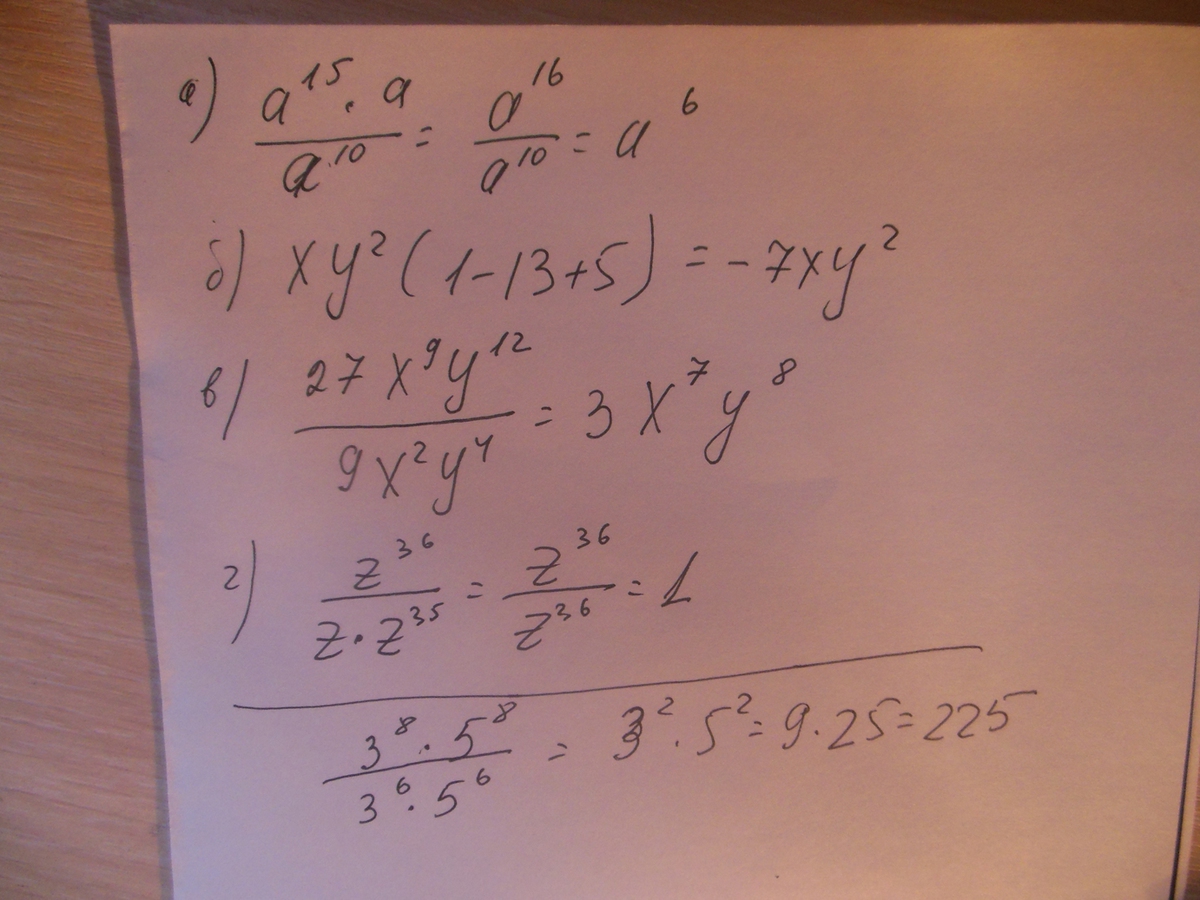 а) a¹⁵ · a / a¹⁰ = a¹⁶ / a¹⁰ = a⁶
б) xy² (1 - 13 + 5) = - 7xy²
в) 27x⁹y¹² / 9x²y⁴ = 3x⁷y⁸
г) z³⁶ / z · z³⁵ = z³⁶ / z³⁶ = 1
3⁸ · 5⁸ / 3⁶ · 5⁶ = 3² · 5² = 9 · 25 = 225